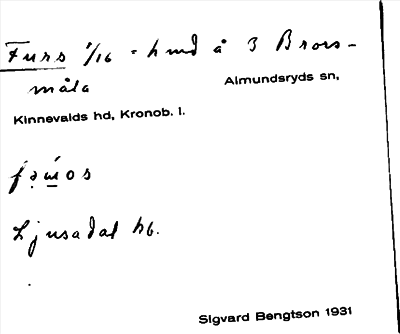 Furs 1/16 - hmd å 3 Brors-
måla Almundsryds sn,
Kinnevalds hd, Kronob. l.
Ljusadal hg.
Sigvard Bengtson 1931